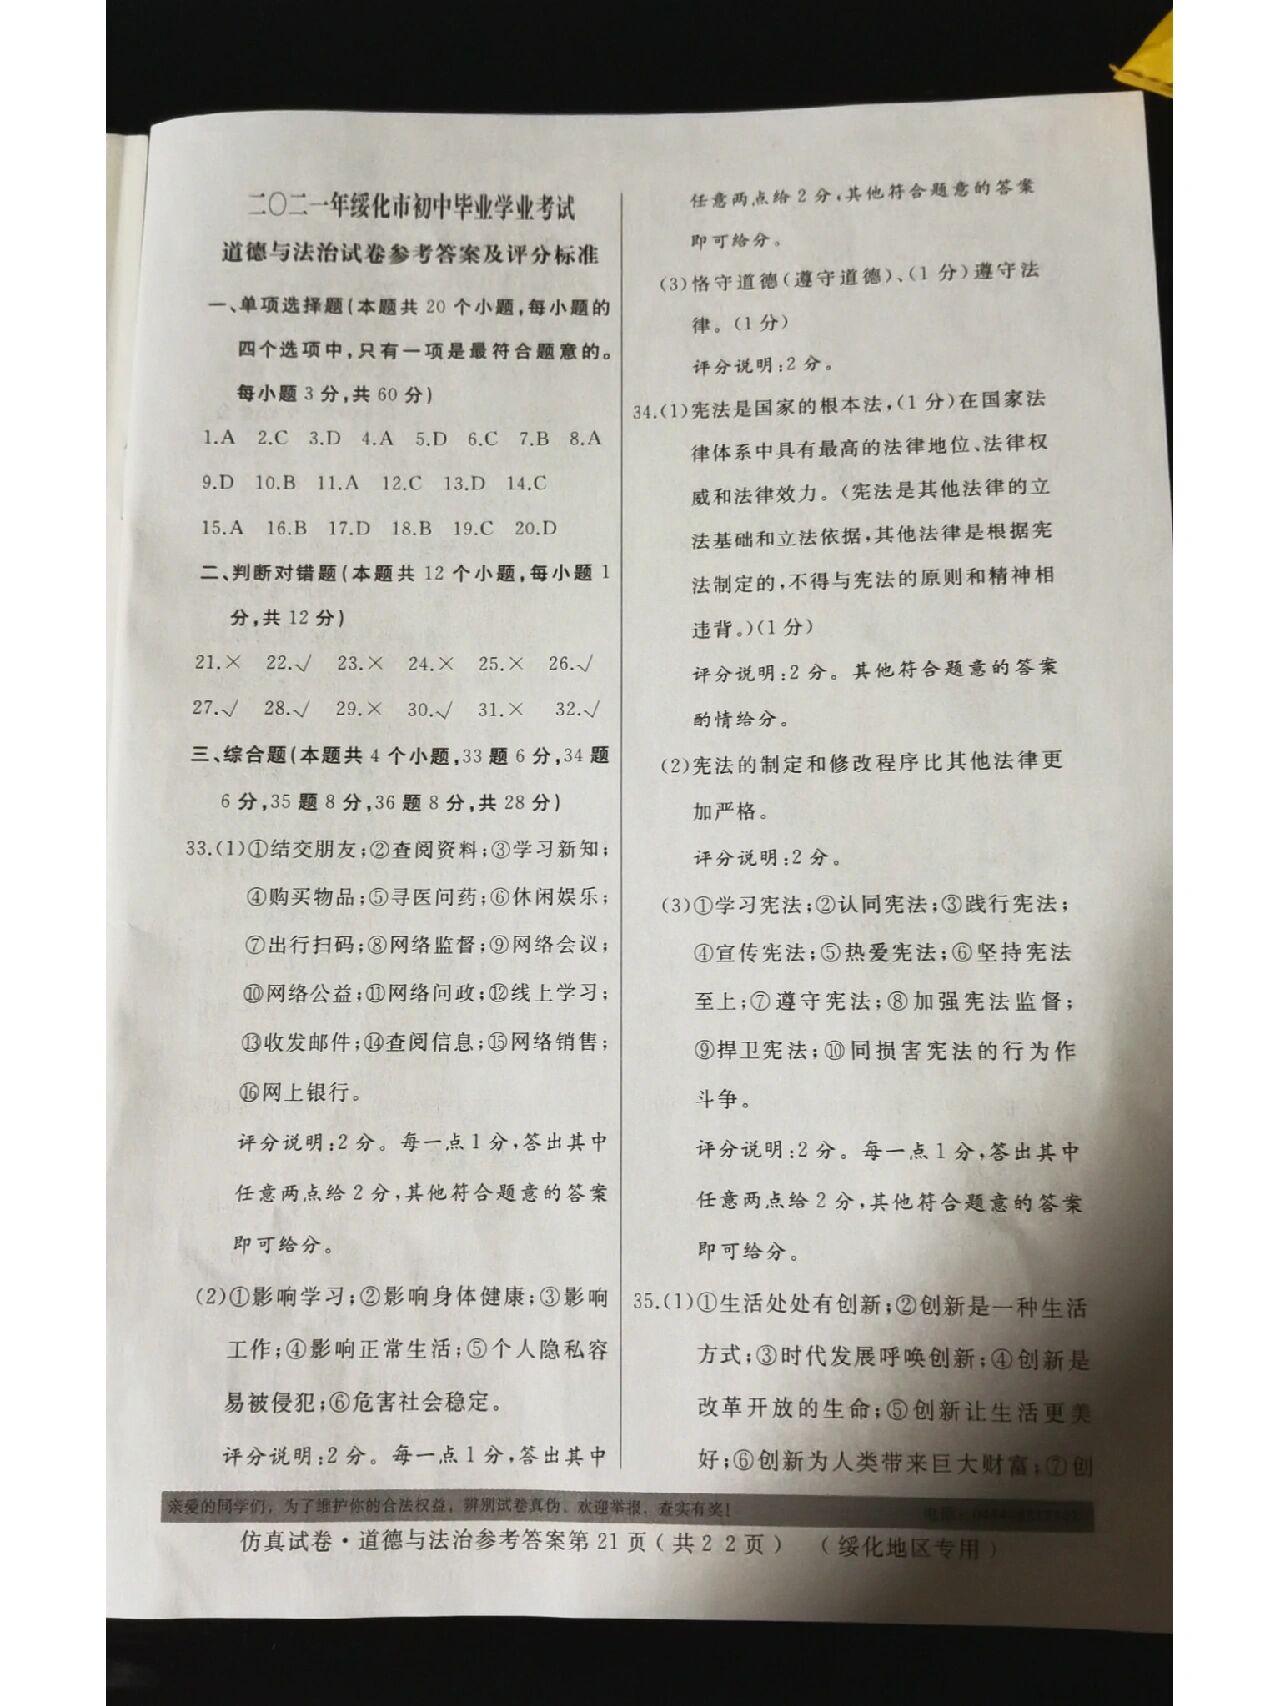 二〇二一年绥化市初中毕业学业考试
道德与法治试卷参考答案及评分标准
一、单项选择题(本题共20个小题,每小题的
四个选项中,只有一项是最符合题意的。
每小题3分,共60分)
1.A 2.C 3.D 4.A 5.D 6.C 7.B 8.A
9.D 10.B 11.A 12.C 13.D 14.C
15.A 16.B 17.D 18.B 19.C 20.D
二、判断对错题(本题共12个小题,每小题1
分,共12分)
21.× 22.√ 23.× 24.× 25.× 26.√
27.√ 28.√ 29.× 30.√ 31.× 32.√
三、综合题(本题共4个小题,33题6分,34题
6分,35题8分,36题8分,共28分)
33.(1)①结交朋友;②查阅资料;③学习新知;
④购买物品;⑤寻医问药;⑥休闲娱乐;
⑦出行扫码;⑧网络监督;⑨网络会议;
⑩网络公益;⑪网络问政;⑫线上学习;
⑬收发邮件;⑭查阅信息;⑮网络销售;
⑯网上银行。
评分说明:2分。每一点1分,答出其中
任意两点给2分,其他符合题意的答案
即可给分。
(2)①影响学习;②影响身体健康;③影响
工作;④影响正常生活;⑤个人隐私容
易被侵犯;⑥危害社会稳定。
评分说明:2分。每一点1分,答出其中
任意两点给2分,其他符合题意的答案
即可给分。
(3)恪守道德(遵守道德)、(1分)遵守法
律。(1分)
评分说明:2分。
34.(1)宪法是国家的根本法,(1分)在国家法
律体系中具有最高的法律地位、法律权
威和法律效力。(宪法是其他法律的立
法基础和立法依据,其他法律是根据宪
法制定的,不得与宪法的原则和精神相
违背。)(1分)
评分说明:2分。其他符合题意的答案
酌情给分。
(2)宪法的制定和修改程序比其他法律更
加严格。
评分说明:2分。
(3)①学习宪法;②认同宪法;③践行宪法;
④宣传宪法;⑤热爱宪法;⑥坚持宪法
至上;⑦遵守宪法;⑧加强宪法监督;
⑨捍卫宪法;⑩同损害宪法的行为作
斗争。
评分说明:2分。每一点1分,答出其中
任意两点给2分,其他符合题意的答案
即可给分。
35.(1)①生活处处有创新;②创新是一种生活
方式;③时代发展呼唤创新;④创新是
改革开放的生命;⑤创新让生活更美
好;⑥创新为人类带来巨大财富;⑦创
亲爱的同学们，为了维护你的合法权益，辨别试卷真伪、欢迎举报、查实有奖！
仿真试卷·道德与法治参考答案第21页(共22页) (绥化地区专用)